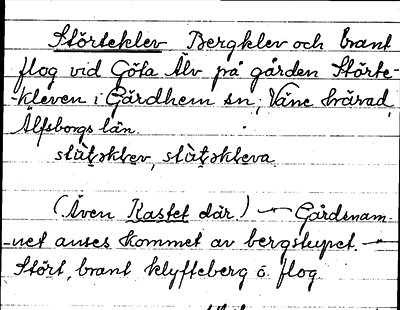 Störteklev Bergklev och brant
flog vid Göta Älv på gården Störte-
-kleven i Gärdhem sn; Väne härad,
Älfsborgs län.
(Även Kastet där.) — Gårdsnam-
-net anses kommet av bergstupet. —
Stört, brant klyfteberg o. flog